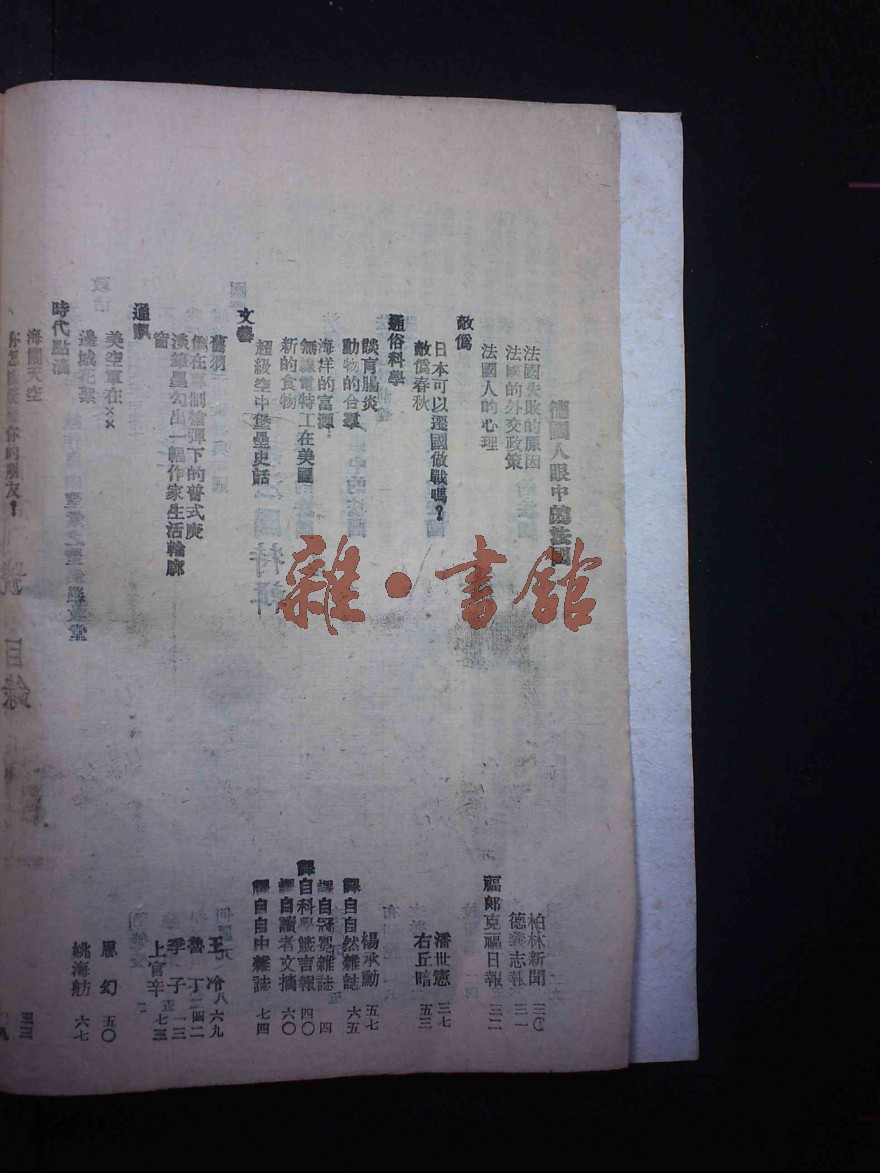 德國人眼中的法國
法國失敗的原因 柏林新聞 三〇
法國的外交政策 德義志報 三一
法國人的心理 福郎克福日報 三二
敵僞
日本可以遷國做戰嗎？ 潘世憲 三七
敵僞春秋 右丘瞎 五三
通俗科學
談盲腸炎 楊承勳 五七
動物的合羣 譯自自然雜誌 六五
海洋的富源！ 譯自冠冕雜誌 四
無線電特工在美國 譯自科學箴言報 四〇
新的食物 譯自讀者文摘 六〇
超級空中堡壘史話 譯自自由雜誌 七四
文藝
舊羽 王冷 八六九
魯丁 二四二
淡筆墨勾出一幅作家生活輪廓 季子 一三
窗 上官辛 七三
通訊
美空軍在×× 恩幻 五〇
邊城花絮 姚海舫 六七
時代點滴
海闊天空 三三
雜·書館
目錄